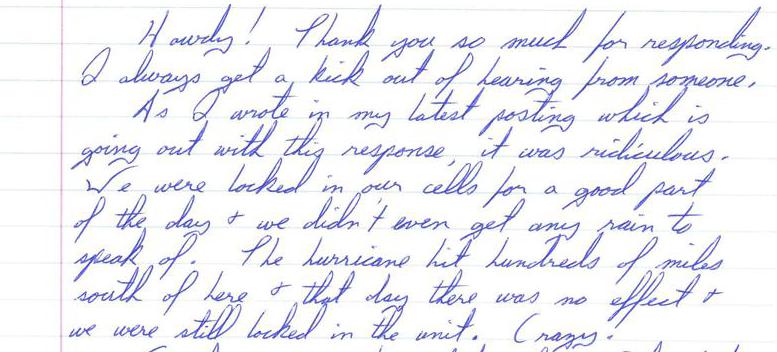 Howdy! Thank you so much for responding.
I always get a kick out of hearing from someone.
As I wrote in my latest posting which is
going out with this response, it was ridiculous.
We were locked in our cells for a good part
of the day & we didn't even get any rain to
speak of. The hurricane hit hundreds of miles
south of here & that day there was no effect &
we were still locked in the unit. Crazy.